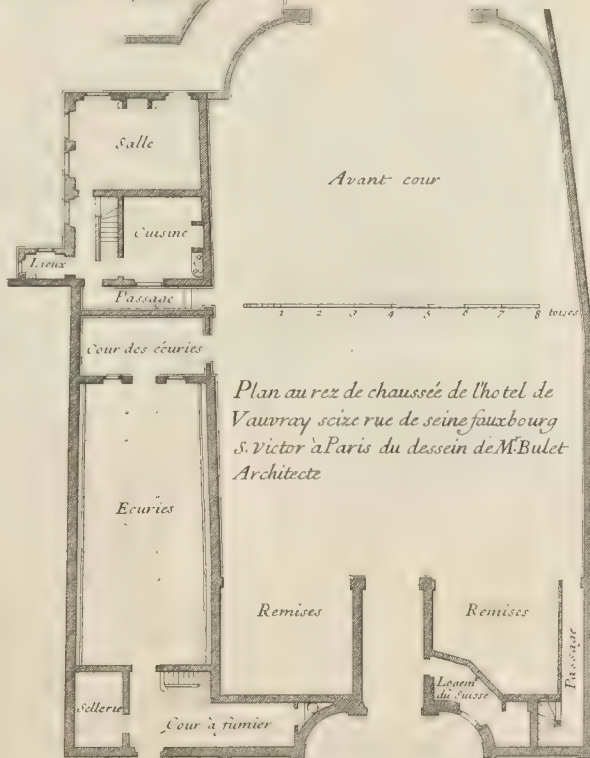 Salle
Avant cour
Cuisine
Lieux
Passage
1 2 3 4 5 6 7 8 toises
Cour des écuries
Plan au rez de chaussée de l'hotel de
Vauvray scize rue de seine fauxbourg
S. victor à Paris du dessein de Mr. Bulet
Architecte
Ecuries
Remises
Remises
Passage
Logem.
du Suisse
Sellerie
Cour à fumier